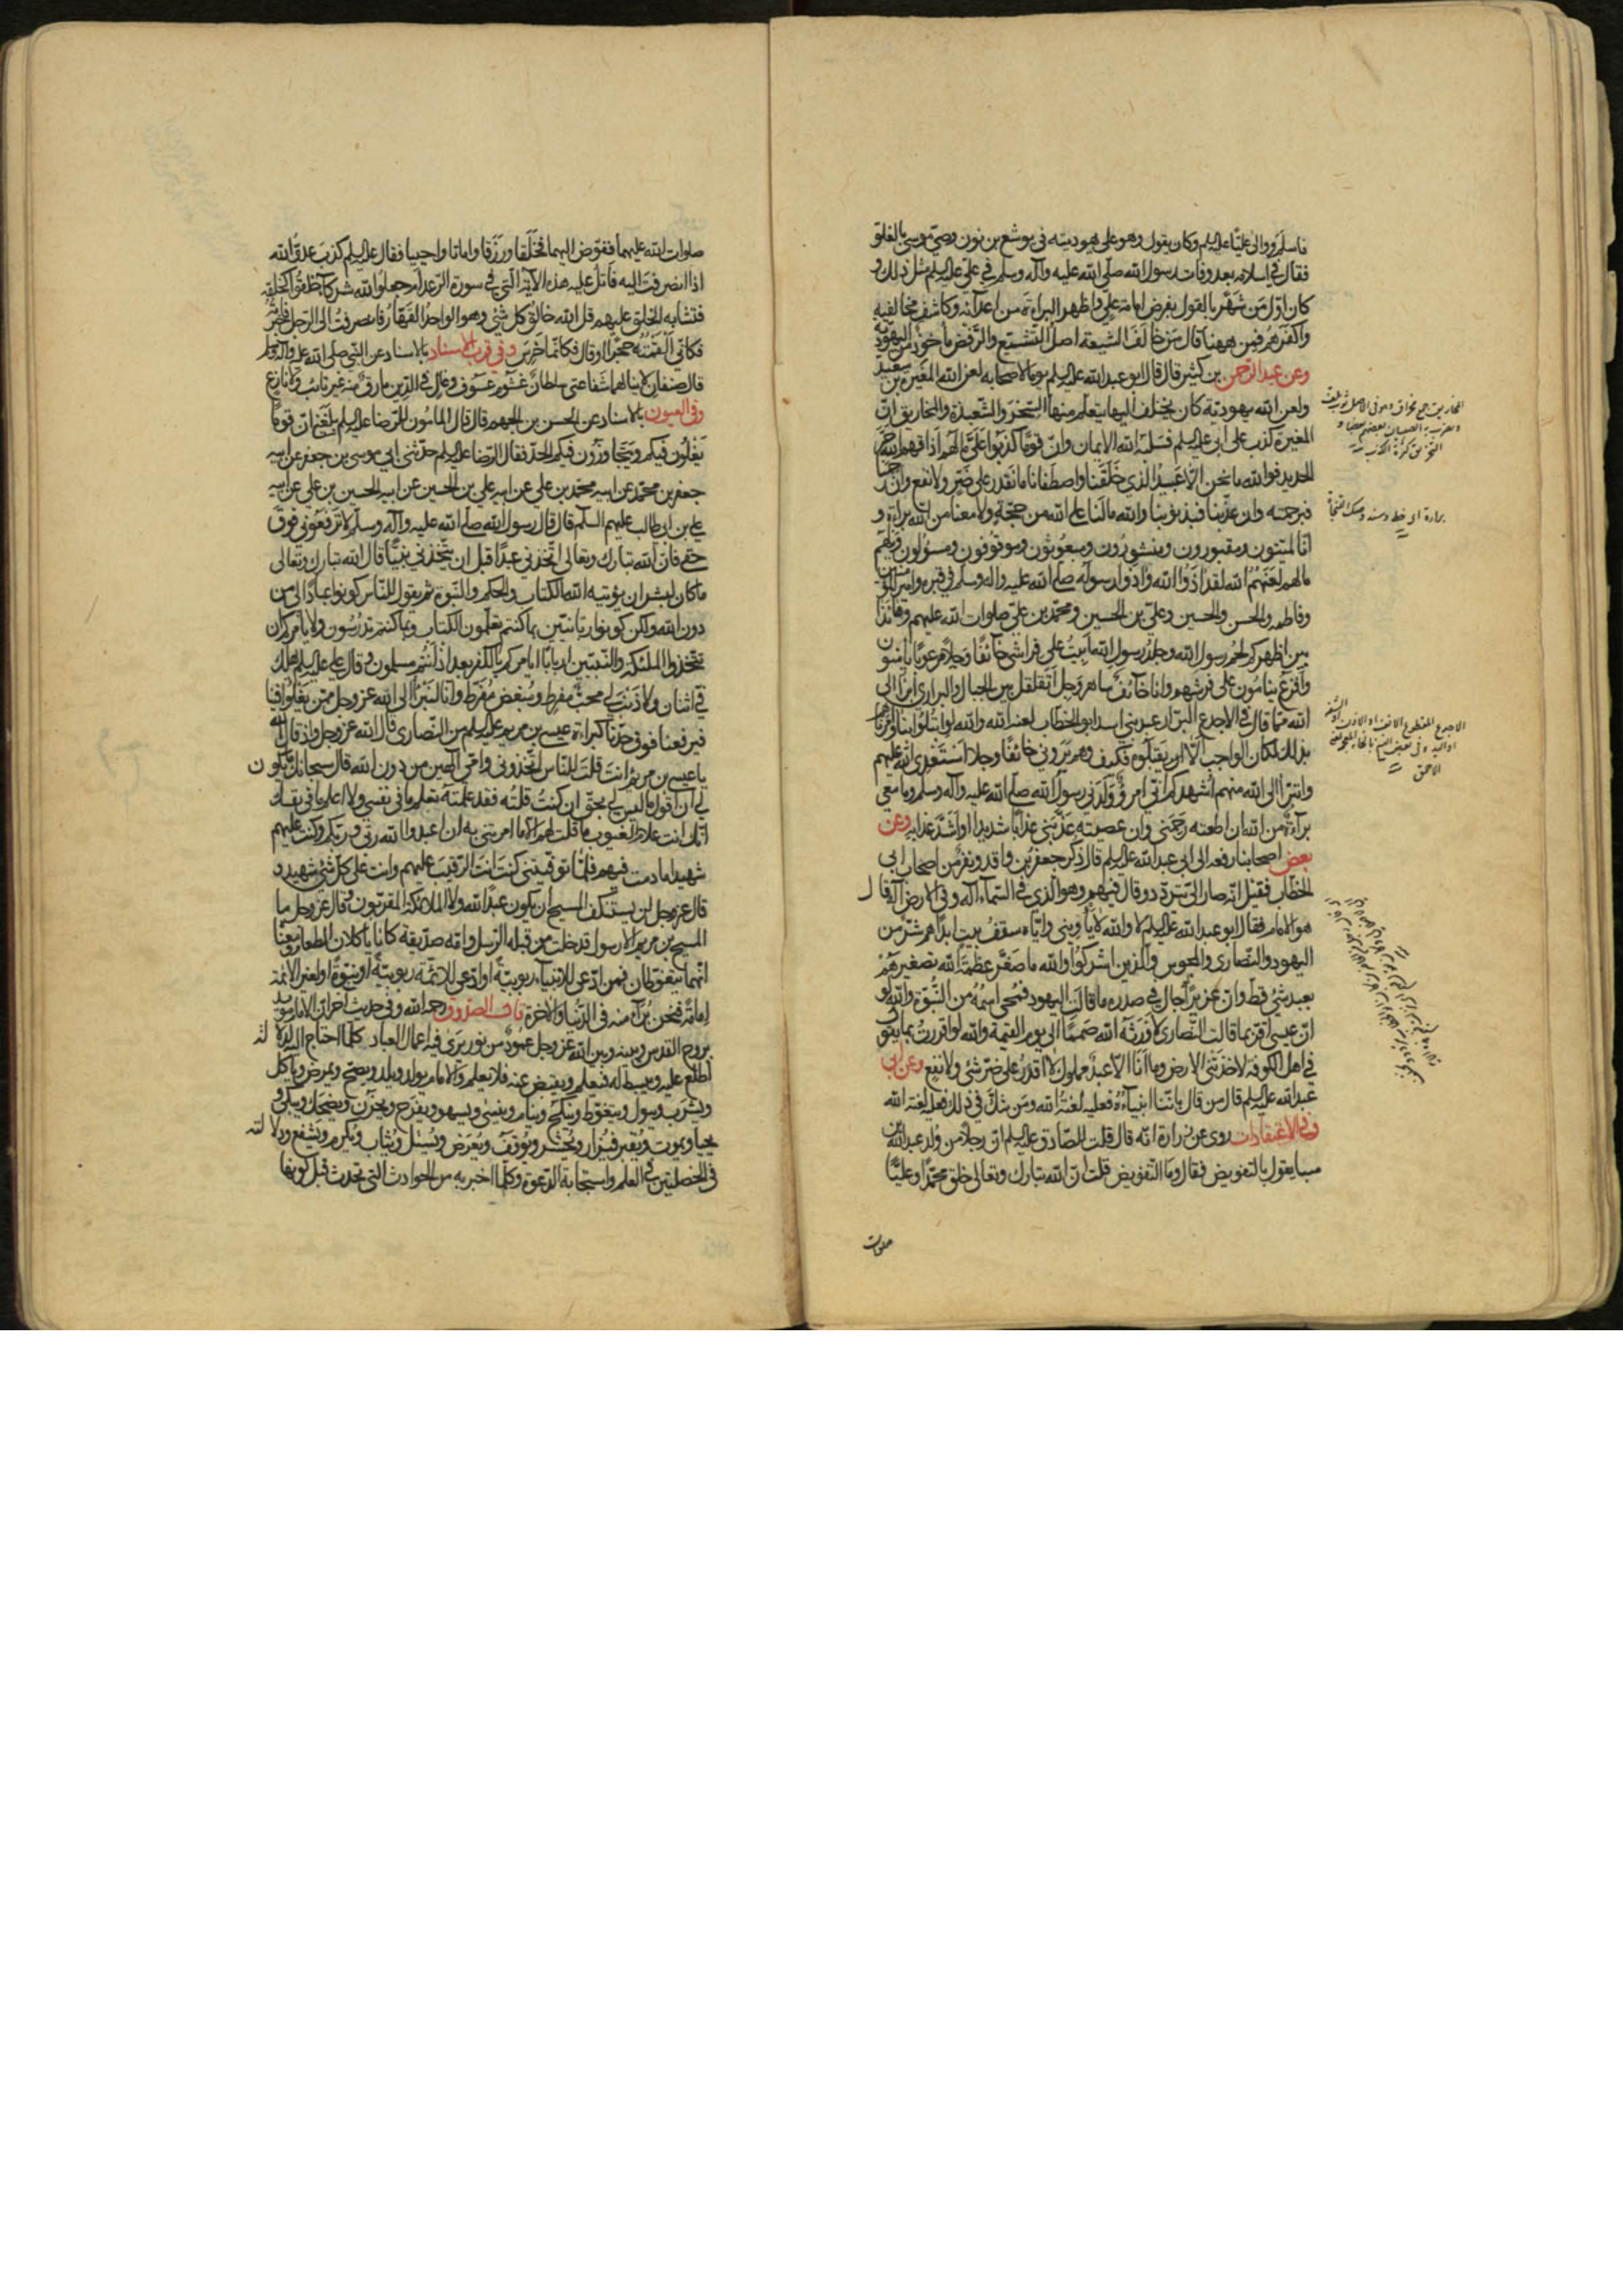 فاسلم ووالى عليّا عليه السلم وكان يقول وهو على يهوديته في يوشع بن نون وصيّ موسى بالغلو
فقال في اسلامه بعد وفات رسول الله صلّى الله عليه وآله وسلم في عليّ عليه السلم مثل ذلك و
كان اوّل من شهّر بالقول بفرض امامة علي واظهر البراءة من اعدآئه وكاشف مخالفيه
واكفرهم فمن ههنا قال من خالف الشيعة اصل التشيّع والرّفض مأخوذ من اليهوديّة
وعن عبد الرّحمن بن كثير قال قال ابو عبد الله عليه السلم يوما لاصحابه لعن الله المغيرة بن سعيد
ولعن الله يهوديّة كان يختلف اليها يتعلّم منها السّحر والشّعبذة والمخاريق انّ
المغيرة كذب على ابي عليه السلم فسلبه الله الايمان وانّ قوما كذبوا عليّ ما لهم اذاقهم الله حرّ
الحديد فوالله ما نحن الّا عبيد الّذي خلقنا واصطفانا ما نقدر على ضرّ ولا نفع وان رحمنا
فبرحمته وان عذّبنا فبذنوبنا والله ما لنا على الله من حجّة ولا معنا من الله براءة و
انّا لميّتون ومقبورون ومنشورون ومبعوثون وموقوفون ومسؤلون ويلهم
ما لهم لعنهم الله لقد اذوا الله واذوا رسوله صلّى الله عليه وآله وسلم في قبره وامير المؤمنين
وفاطمه والحسن والحسين وعليّ بن الحسين ومحمّد بن عليّ صلوات الله عليهم وها انا ذا
بين اظهركم لحم رسول الله وجلد رسول الله ابيت على فراشي خآئفا وجلا مرعوبا يأمنون
وافزع ينامون على فرشهم وانا خآئف ساهر وجل اتقلقل بين الجبال والبراري ابرأ الى
الله ممّا قال فيّ الاجدع البرّاد عبد بني اسد ابو الخطّاب لعنه الله والله لو ابتلوا بنا وامرناهم
بذلك لكان الواجب الّا يقبلوه فكيف وهم يروني خائفا وجلا استعدي الله عليهم
واتبرّأ الى الله منهم اشهدكم انّي امرؤ ولدني رسول الله صلّى الله عليه وآله وسلم وما معي
برآءة من الله ان اطعته رحمني وان عصيته عذّبني عذابا شديدا او اشدّ عذابه وعن
بعض اصحابنا رفعه الى ابي عبد الله عليه السلم قال ذكر جعفر بن واقد ونفر من اصحاب ابي
الخطّاب فقيل انّه صار الى يتردّد وقال فيهم وهو الّذي في السّماء اله وفي الارض اله قال
هو الامام فقال ابو عبد الله عليه السلم لا والله لا يأويني وايّاه سقف بيت ابدا هم شرّ من
اليهود والنّصارى والمجوس والّذين اشركوا والله ما صغّر عظمة الله تصغيرهم
بعيد شيء قط وانّ عزيرا جال في صدره ما قالت اليهود فمحي اسمه من النّبوّة والله لو
انّ عيسى اقرّ بما قالت النّصارى لاورثه الله صمما الى يوم القيمة والله لو اقررت بما يقول
فيّ اهل الكوفة لاخذتني الارض وما انا الّا عبد مملوك لا اقدر على ضرّ شيء ولا نفع وعن ابي
عبد الله عليه السلم قال من قال باننّا انبيآء فعليه لعنة الله ومن شكّ في ذلك فعليه لعنة الله
وفي الاعتقادات روي عن زرارة انّه قال قلت للصّادق عليه السلم انّ رجلا من ولد عبد الله بن
سبا يقول بالتفويض فقال وما التّفويض قلت انّ الله تبارك وتعالى خلق محمّدا وعليّا
صلوات
صلوات الله عليهما ففوّض اليهما فخلقا ورزقا واماتا واحييا فقال عليه السلم كذب عدوّ الله
اذا انصرفت اليه فاتل عليه هذه الآية الّتي في سورة الرّعد ام جعلوا لله شركآء خلقوا كخلقه
فتشابه الخلق عليهم قل الله خالق كل شيء وهو الواحد القهّار فانصرفت الى الرّجل فاخبرته
فكانّي القمته حجرا او قال فكانّما خرس وفي قرب الاسناد بالاسناد عن النّبي صلى الله عليه وآله وسلم
قال صنفان لا ينالهما شفاعتي سلطان غشوم عسوف وغال في الدّين مارق منه غير تائب ولا نازع
وفي العيون بالاسناد عن الحسن بن الجهم قال قال المأمون للرّضا عليه السلم بلغني انّ قوما
يغلون فيكم ويتجاوزون فيكم الحدّ فقال الرّضا عليه السلم حدّثني ابي موسى بن جعفر عن ابيه
جعفر بن محمّد عن ابيه محمّد بن علي عن ابيه علي بن الحسين عن ابيه الحسين بن علي عن ابيه
علي بن ابي طالب عليهم السلم قال قال رسول الله صلّى الله عليه وآله وسلم لا ترفعوني فوق
حقّي فانّ الله تبارك وتعالى اتّخذني عبدا قبل ان يتّخذني نبيّا قال الله تبارك وتعالى
ما كان لبشر ان يؤتيه الله الكتاب والحكم والنّبوة ثم يقول للنّاس كونوا عبادا لي من
دون الله ولكن كونوا ربانيّين بما كنتم تعلّمون الكتاب وبما كنتم تدرسون ولا يأمركم ان
تتّخذوا الملئكة والنّبيّين اربابا ايأمركم بالكفر بعد اذ انتم مسلمون وقال علي عليه السلم يهلك
فيّ اثنان ولا ذنب لي محبّ مفرط ومبغض مفرّط وانا لنبرأ الى الله عز وجل ممّن يغلوا فينا
فيرفعنا فوق حدّنا كبراءة عيسى بن مريم عليه السلم من النّصارى قال الله عز وجل واذ قال الله
يا عيسى بن مريم ءانت قلت للنّاس اتّخذوني وامّي الهين من دون الله قال سبحانك ما يكون
لي ان اقول ما ليس لي بحقّ ان كنت قلته فقد علمته تعلم ما في نفسي ولا اعلم ما في نفسك
انّك انت علام الغيوب ما قلت لهم الّا ما امرتني به ان اعبدوا الله ربّي وربّكم وكنت عليهم
شهيدا ما دمت فيهم فلمّا توفيتني كنت انت الرّقيب عليهم وانت على كلّ شيء شهيد و
قال عز وجل لن يستنكف المسيح ان يكون عبدا لله ولا الملائكة المقرّبون وقال عز وجل ما
المسيح بن مريم الّا رسول قد خلت من قبله الرّسل وامّه صدّيقة كانا يأكلان الطعام ومعناه
انّهما يتغوّطان فمن ادّعى للانبيآء ربوبيّة او ادّعى للائمّة ربوبيّة او نبوّة او لغير الائمّة
امامة فنحن برآء منه في الدّنيا والآخرة قال الصدوق رحمه الله وفي حديث آخر انّ الامام مؤيد
بروح القدس وبينه وبين الله عز وجل عمود من نور يرى فيه اعمال العباد كلّما احتاج اليه لدلالة
اطّلع عليه ويبسط له فيعلم ويقبض عنه فلا يعلم والامام يولد ويلد ويصحّ ويمرض ويأكل
ويشرب ويبول ويتغوّط وينكح وينام وينسى ويسهو ويفرح ويحزن ويضحك ويبكي و
يحيا ويموت ويقبر فيزار ويحشر ويوقف ويعرض ويسئل ويثاب ويكرم ويشفع ودلالته
في الخصلتين في العلم واستجابة الدّعوة وكلّما اخبر به من الحوادث الّتي تحدث قبل كونها